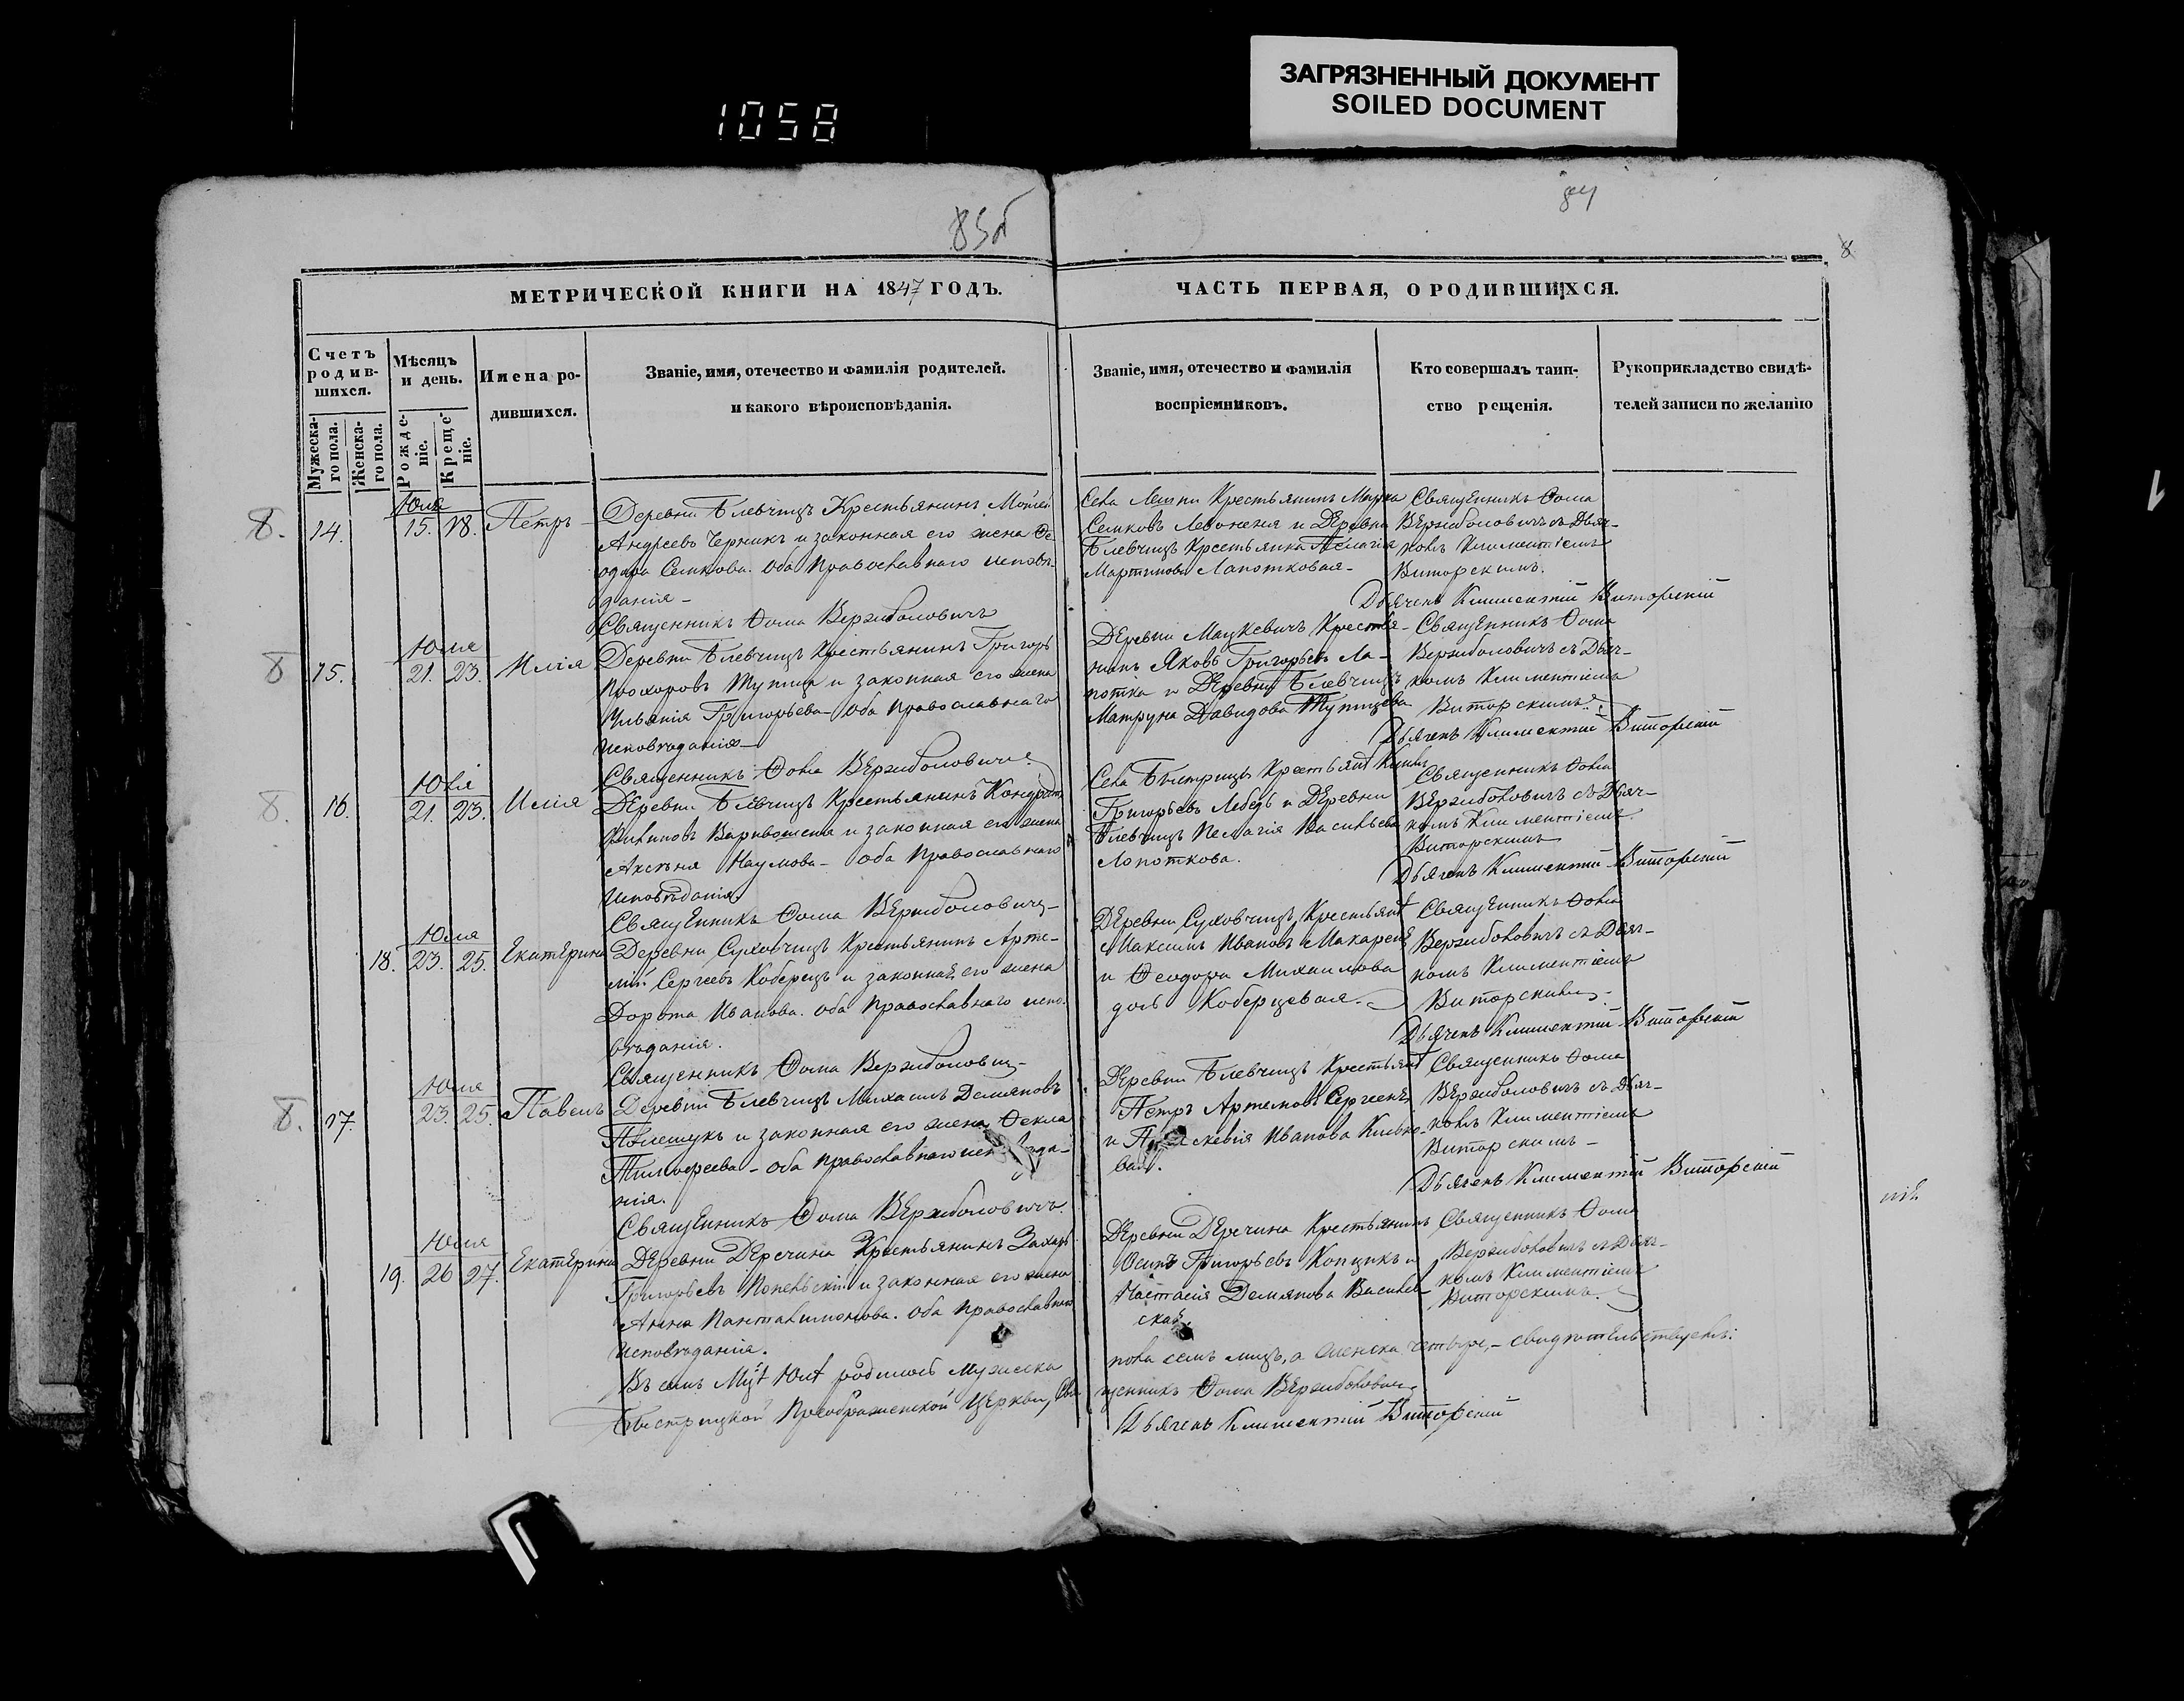 ЗАГРЯЗНЕННЫЙ ДОКУМЕНТ
SOILED DOCUMENT
1058
84
8
МЕТРИЧЕСКОЙ КНИГИ НА 1847 ГОДЪ.
ЧАСТЬ ПЕРВАЯ, О РОДИВШИХСЯ.
Счетъ родив-
шихся.
Мужеска-
го пола.
Женска-
го пола.
Мѣсяцъ
и день.
Рожде-
ніе.
Креще-
ніе.
Имена ро-
дившихся.
Званіе, имя, отечество и фамилія родителей.
и какого вѣроисповѣданія.
Званіе, имя, отечество и фамилія
воспріемниковъ.
Кто совершалъ таин-
ство рещенія.
Рукоприкладство свидѣ-
телей записи по желанію
Юля
14. 15. 18. Петръ
Деревни Блевчицъ Крестьянинъ
Андреевъ Черникъ и законная его жена Ѳе
одора Семкова. Оба Православнаго исповѣ-
данія-
Священникъ Ѳома Вержболовичъ
Села Крестьянинъ Марко
Семковъ и Деревни
Блевчицъ Крестьянка Пелагія
Мартинова Лапотковая-
Священникъ Ѳома
Вержболовичъ съ Дьяч-
комъ Климентіемъ
Виторскимъ.
Дьячекъ Климентій Виторскій
Юля
15. 21. 23. Илія
Деревни Блевчицъ Крестьянинъ Григорь
Прохоровъ Тупица и законная его жена
Ульянія Григорьева- Оба Православнаго
исповѣданія-
Священникъ Ѳома Вержболовичъ
Деревни Мацкевичъ Крестья-
нинъ Яковъ Григорьевъ Ла-
потка и Деревни Блевчицъ
Матруна Давидова Тупицева
Священникъ Ѳома
Вержболовичъ съ Дьяч-
комъ Климентіемъ
Виторскимъ
Дьячекъ Климентій Виторскій
Юля
16. 21. 23. Илія
Деревни Блевчицъ Крестьянинъ Кондратъ
Филиповъ и законная его жена
Аксенія Наумова- Оба Православнаго
исповѣданія
Священникъ Ѳома Вержболовичъ-
Села Быстрицы
Григорьевъ Лебедь и Деревни
Блевчицъ Пелагія Васильева
Лопоткова.
Священникъ Ѳома
Вержболовичъ съ Дьяч-
комъ Климентіемъ
Виторскимъ
Дьячекъ Климентій Виторскій
Юля
18. 23. 25. Екатерина
Деревни Суховчицъ Крестьянинъ Арте-
мій Сергеевъ Коберецъ и законная его жена
Дорота Иванова. Оба Православнаго испо-
вѣданія.
Священникъ Ѳома Вержболовичъ-
Деревни Суховчицъ
Максимъ Ивановъ
и Ѳеодора Михаилова
Коберцевая.
Священникъ Ѳома
Вержболовичъ съ Дьяч-
комъ Климентіемъ
Виторскимъ-
Дьячекъ Климентій Виторскій
Юля
17. 23. 25. Павелъ
Деревни Блевчицъ Михаилъ Демяновъ
Полещукъ и законная его жена Ѳекла
Тимофеева- Оба Православнаго
нія.
Священникъ Ѳома Вержболовичъ.
Деревни Блевчицъ
Петръ Артемовъ
и Иванова
Священникъ Ѳома
Вержболовичъ съ Дьяч-
комъ Климентіемъ
Виторскимъ-
Дьячекъ Климентій Виторскій
Юля
19. 26 27. Екатерина
Деревни Деречина Крестьянинъ Захарь
Григорьевъ и законная его жена
Анна Пантелимонова. Оба Православнаго
исповѣданія.
Деревни Деречина Крестьянинъ
Осипъ Григорьевъ Копцикъ и
Настасія Демянова
Священникъ Ѳома
Вержболовичъ съ Дьяч-
комъ Климентіемъ
Виторскимъ.
Въ семъ родилось Мужеска
пола семъ лицъ, а женска четыре,- свидѣтельствуемъ:
Быстрицкой Преображенской Церкви, Свя
щенникъ Ѳома Вержболовичъ
Дьячекъ Климентій Виторскій